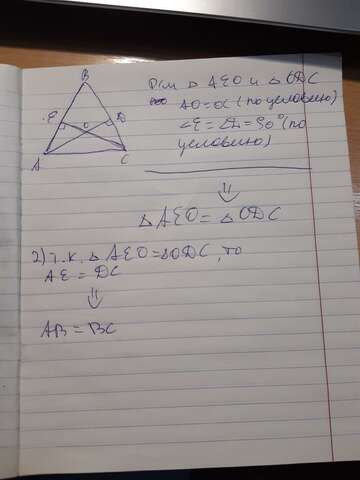 B
Рсм △ AEO и △ ODC
AO=OC (по условию)
E
O
D
∠E = ∠D = 90° (по
условию)
A
C
⇓
△AEO = △ODC
2) т.к. △AEO=△ODC, то
AE = DC
⇓
AB = BC